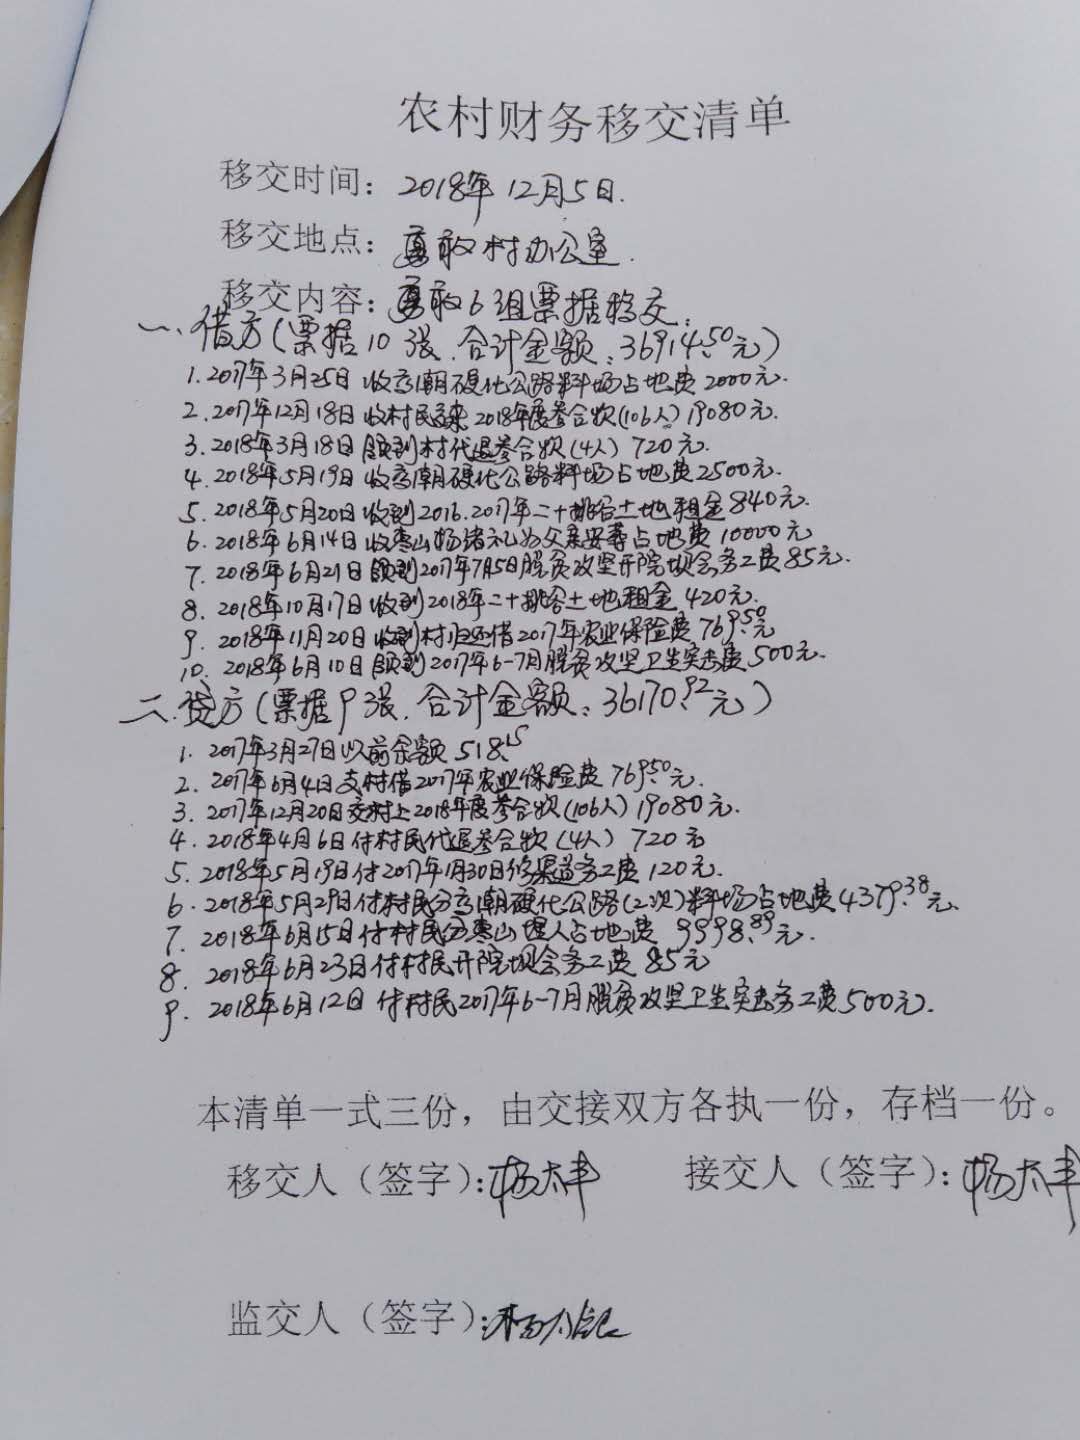 农村财务移交清单
移交时间：2018年12月5日.
移交地点：勇敢村办公室.
移交内容：勇敢6组票据移交.
一、借方(票据10张.合计金额:36914.50元)
1.2017年3月25日收高潮硬化公路料场占地费2000元.
2.2017年12月18日收村民交来2018年度参合款(106人)19080元.
3.2018年3月18日领到村代退参合款(4人)720元.
4.2018年5月19日收高潮硬化公路料场占地费2500元.
5.2018年5月20日收到2016.2017年二十挑谷土地租金840元.
6.2018年6月14日收枣山杨绪礼为父亲安葬占地费10000元
7.2018年6月21日领到2017年7月5日脱贫攻坚开院坝会务工费85元.
8.2018年10月17日收到2018年二十挑谷土地租金420元.
9.2018年11月20日收到村归还借2017年农业保险费769.50元
10.2018年6月10日领到2017年6-7月脱贫攻坚卫生突击费500元.
二.贷方(票据9张.合计金额:36170.92元)
1.2017年3月27日以前余额518.15
2.2017年6月4日支村借2017年农业保险费769.50元.
3.2017年12月20日交村上2018年度参合款(106人)19080元.
4.2018年4月6日付村民代退参合款(4人)720元
5.2018年5月19日付2017年1月30日修渠道务工费120元.
6.2018年5月29日付村民分高潮硬化公路(2次)料场占地费4379.38元.
7.2018年6月15日付村民分枣山埋人占地费9998.89元.
8.2018年6月23日付村民开院坝会务工费85元
9.2018年6月12日付村民2017年6-7月脱贫攻坚卫生突击务工费500元.
本清单一式三份，由交接双方各执一份，存档一份。
移交人（签字）：杨太丰 接交人（签字）：杨太丰
监交人（签字）：杨